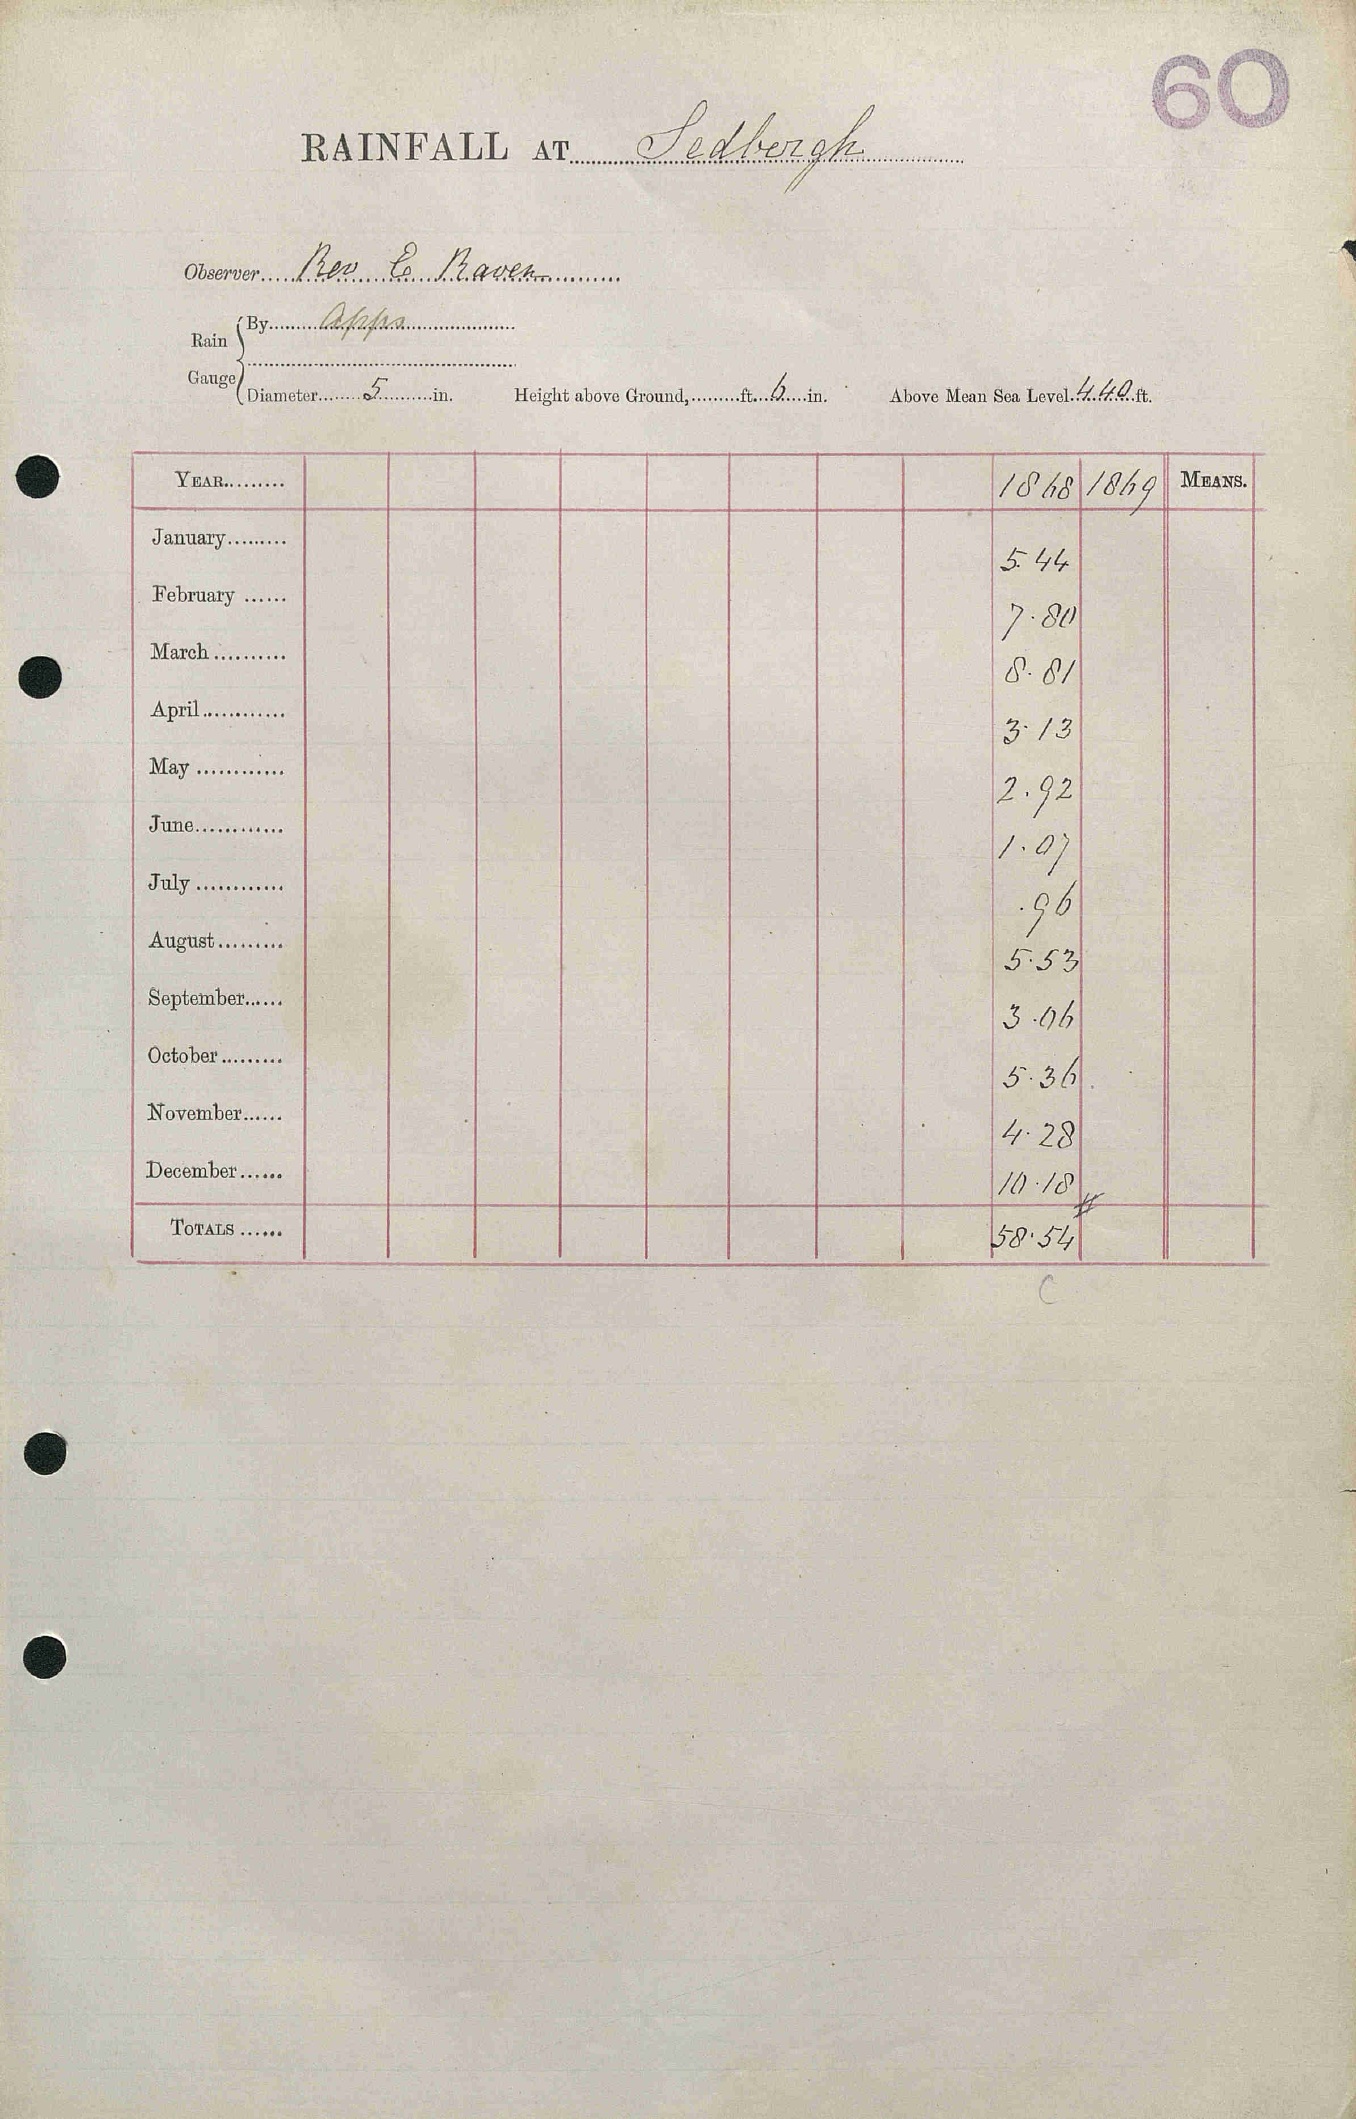 60
RAINFALL AT Sedbergh
Observer Rev E Raven
Rain Gauge
By Apps
Diameter 5 in. Height above Ground, ft. 6 in. Above Mean Sea Level 440 ft.
YEAR 1868 1869 MEANS.
January 5.44
February 7.80
March 8.81
April 3.13
May 2.92
June 1.07
July .96
August 5.53
September 3.06
October 5.36
November 4.28
December 10.18
TOTALS 58.54
C